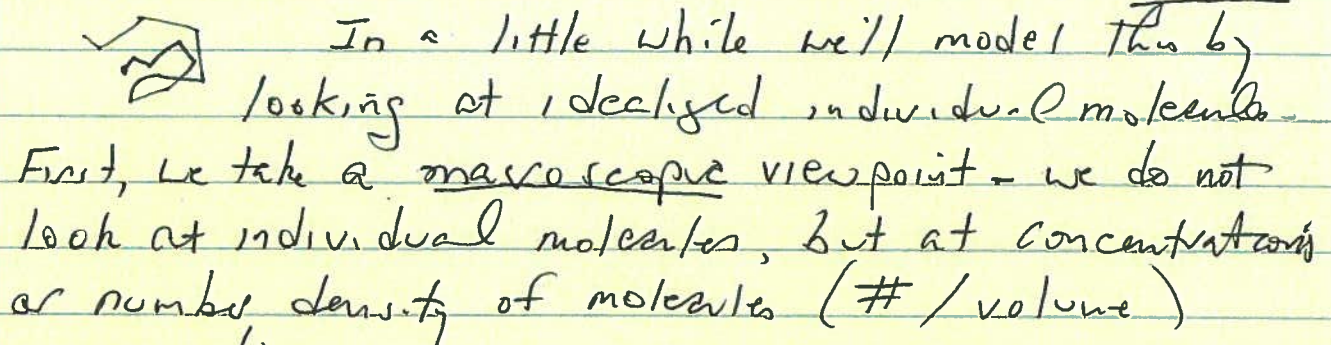 In a little while we'll model this by
looking at idealized individual molecules.
First, we take a macroscopic viewpoint - we do not
look at individual molecules, but at concentrations
or number density of molecules (# / volume)